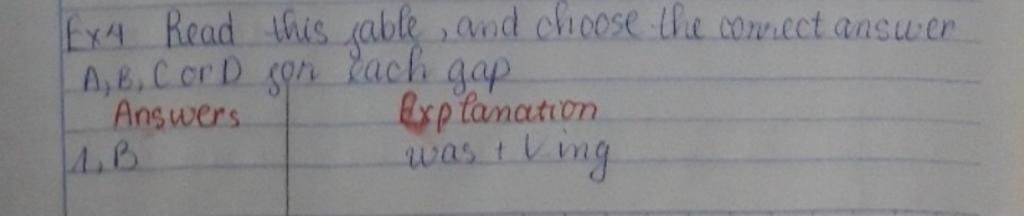 Ex4 Read this fable, and choose the correct answer
A, B, C or D for each gap
Answers Explanation
1, B was + Ving